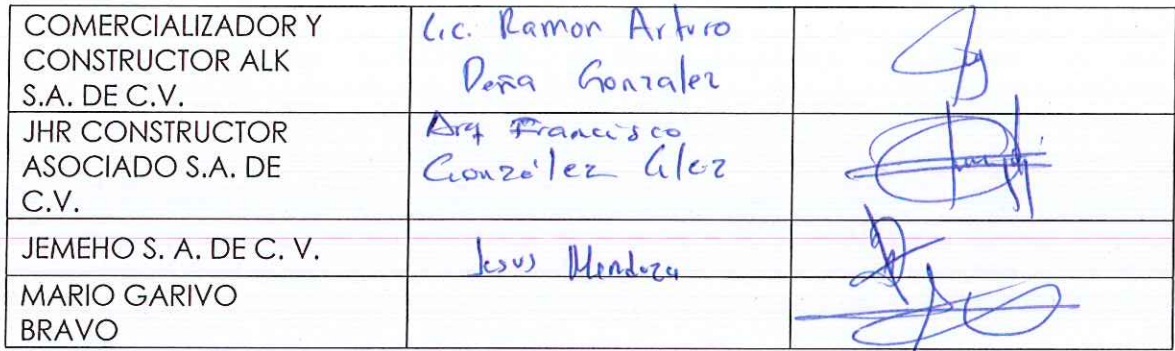 COMERCIALIZADOR Y
CONSTRUCTOR ALK
S.A. DE C.V.
Lic. Ramon Arturo
Peña Gonzalez
JHR CONSTRUCTOR
ASOCIADO S.A. DE
C.V.
Arq Francisco
González Glez
JEMEHO S. A. DE C. V.
Jesus Mendoza
MARIO GARIVO
BRAVO